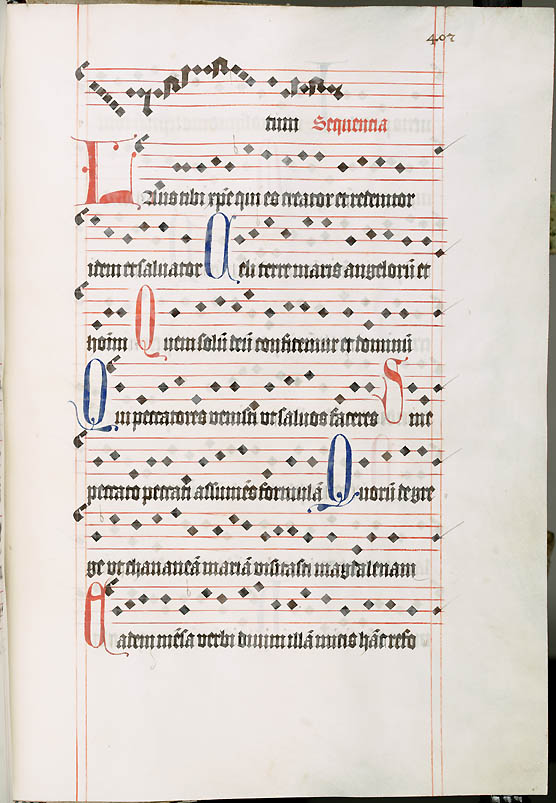 407
tum Sequencia
Laus tibi xp̄e qui es creator et redemtor
idem et saluator Celi terre maris angelorū et
hoīm Quem solū deū confitemur et dominū
Qui peccatores venisti vt saluos faceres Sine
peccato peccati assumēs formulā Quorū de gre
ge vt chananeā mariā visitasti magdalenam
Eadem mēsa verbi diuini illā micis hāc refo